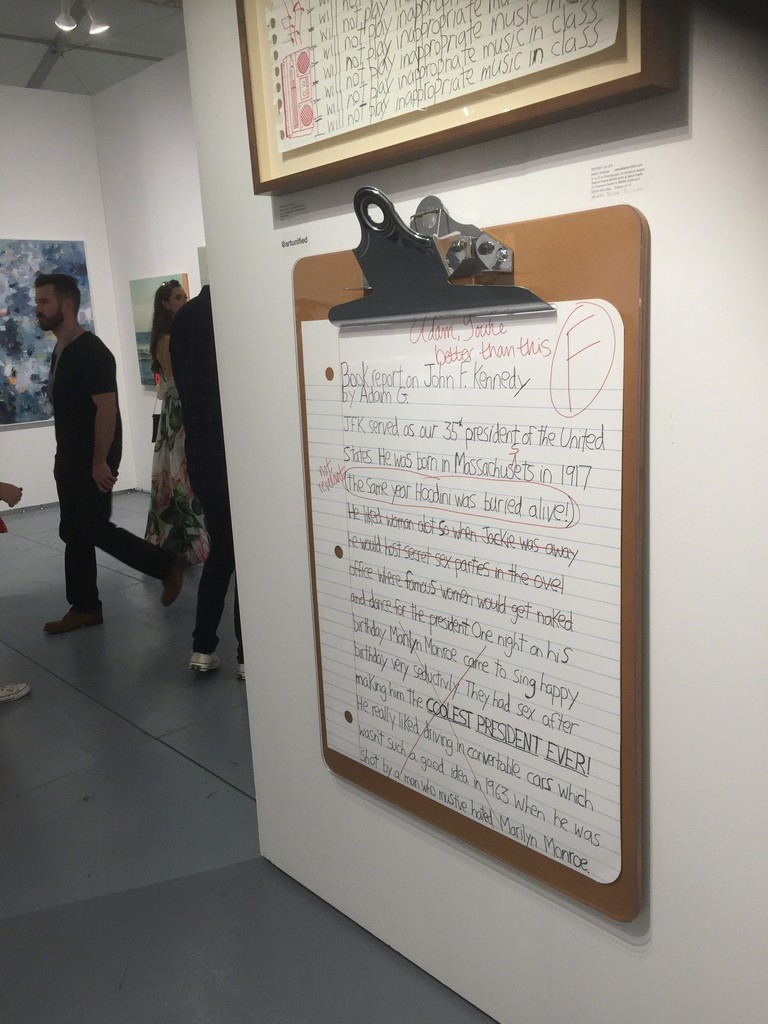 will not play inappropriate music in
I will not play inappropriate music in class
I will not play inappropriate music in class
I will not play inappropriate music in class
@artunified
Adam, You're
better than this
F
Book report on John F. Kennedy
by Adam G.
JFK served as our 35th president of the United
States. He was born in Massachusets in 1917
s
not
revelant
(the same year Hoodini was buried alive!)
He liked woman alot so when Jackie was away
he would host secret sex parties in the ovel
office where famous women would get naked
and dance for the president. One night on his
birthday Marilyn Monroe came to sing happy
birthday very seductivly. They had sex after
making him the COOLEST PRESIDENT EVER!
He really liked driving in convertable cars which
wasn't such a good idea in 1963 when he was
shot by a man who mustive hated Marilyn Monroe.